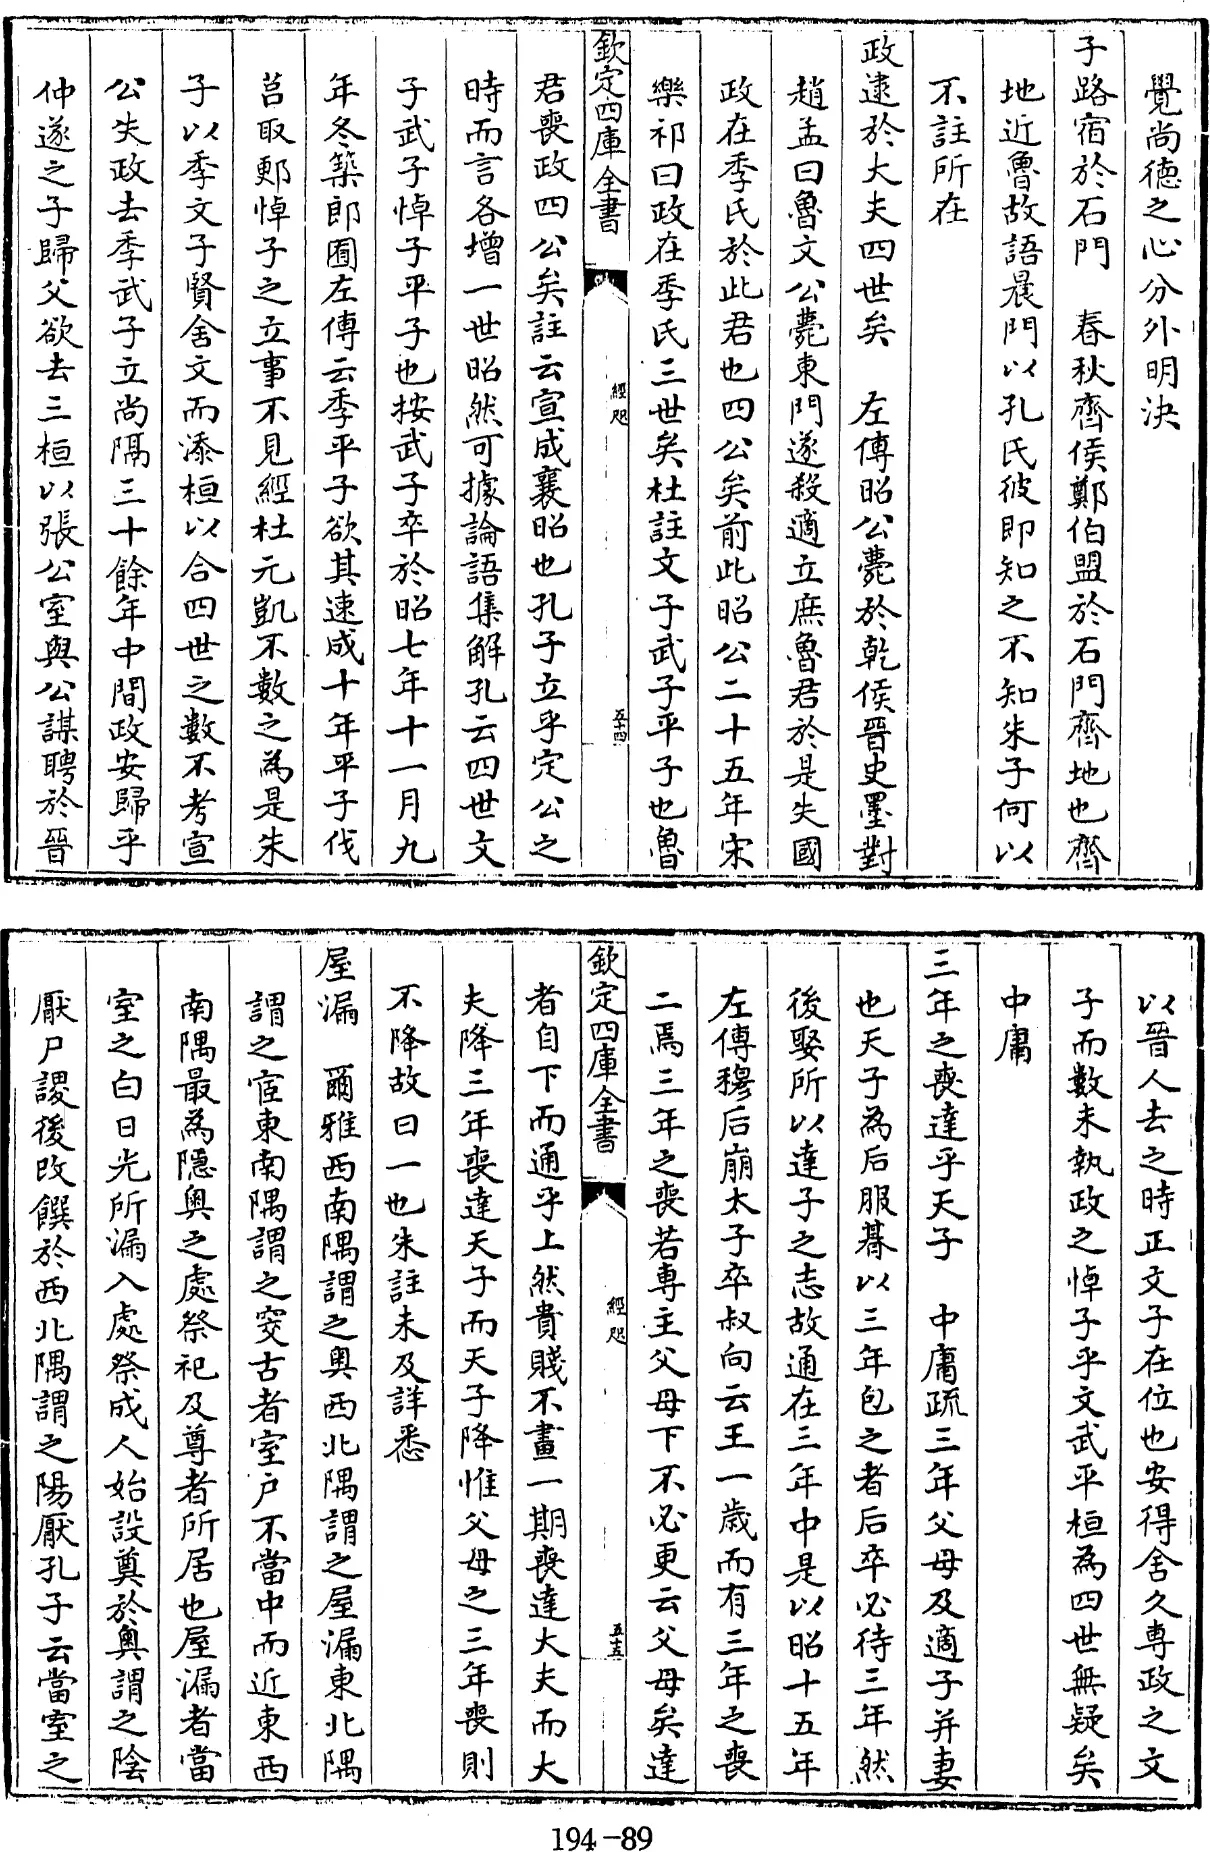 覺尚德之心分外明決
子路宿於石門　春秋齊侯鄭伯盟於石門齊地也齊
地近魯故語晨門以孔氏彼即知之不知朱子何以
不註所在
政逮於大夫四世矣　左傳昭公薨於乾侯晉史墨對
趙孟曰魯文公薨東門遂殺適立庶魯君於是失國
政在季氏於此君也四公矣前此昭公二十五年宋
樂祁曰政在季氏三世矣杜註文子武子平子也魯
欽定四庫全書
經咫
五十四
君喪政四公矣註云宣成襄昭也孔子立乎定公之
時而言各增一世昭然可據論語集解孔云四世文
子武子悼子平子也按武子卒於昭七年十一月九
年冬築郎囿左傳云季平子欲其速成十年平子伐
莒取郠悼子之立事不見經杜元凱不數之為是朱
子以季文子賢舍文而添桓以合四世之數不考宣
公失政去季武子立尚隔三十餘年中間政安歸乎
仲遂之子歸父欲去三桓以張公室與公謀聘於晉
以晉人去之時正文子在位也安得舍久專政之文
子而數未執政之悼子乎文武平桓為四世無疑矣
中庸
三年之喪達乎天子　中庸疏三年父母及適子并妻
也天子為后服朞以三年包之者后卒必待三年然
後娶所以達子之志故通在三年中是以昭十五年
左傳穆后崩太子卒叔向云王一歲而有三年之喪
二焉三年之喪若專主父母下不必更云父母矣達
欽定四庫全書
經咫
五十五
者自下而通乎上然貴賤不畫一期喪達大夫而大
夫降三年喪達天子而天子降惟父母之三年喪則
不降故曰一也朱註未及詳悉
屋漏　爾雅西南隅謂之奧西北隅謂之屋漏東北隅
謂之宧東南隅謂之窔古者室戶不當中而近東西
南隅最為隱奧之處祭祀及尊者所居也屋漏者當
室之白日光所漏入處祭成人始設奠於奧謂之陰
厭尸謖後改饌於西北隅謂之陽厭孔子云當室之
194-89